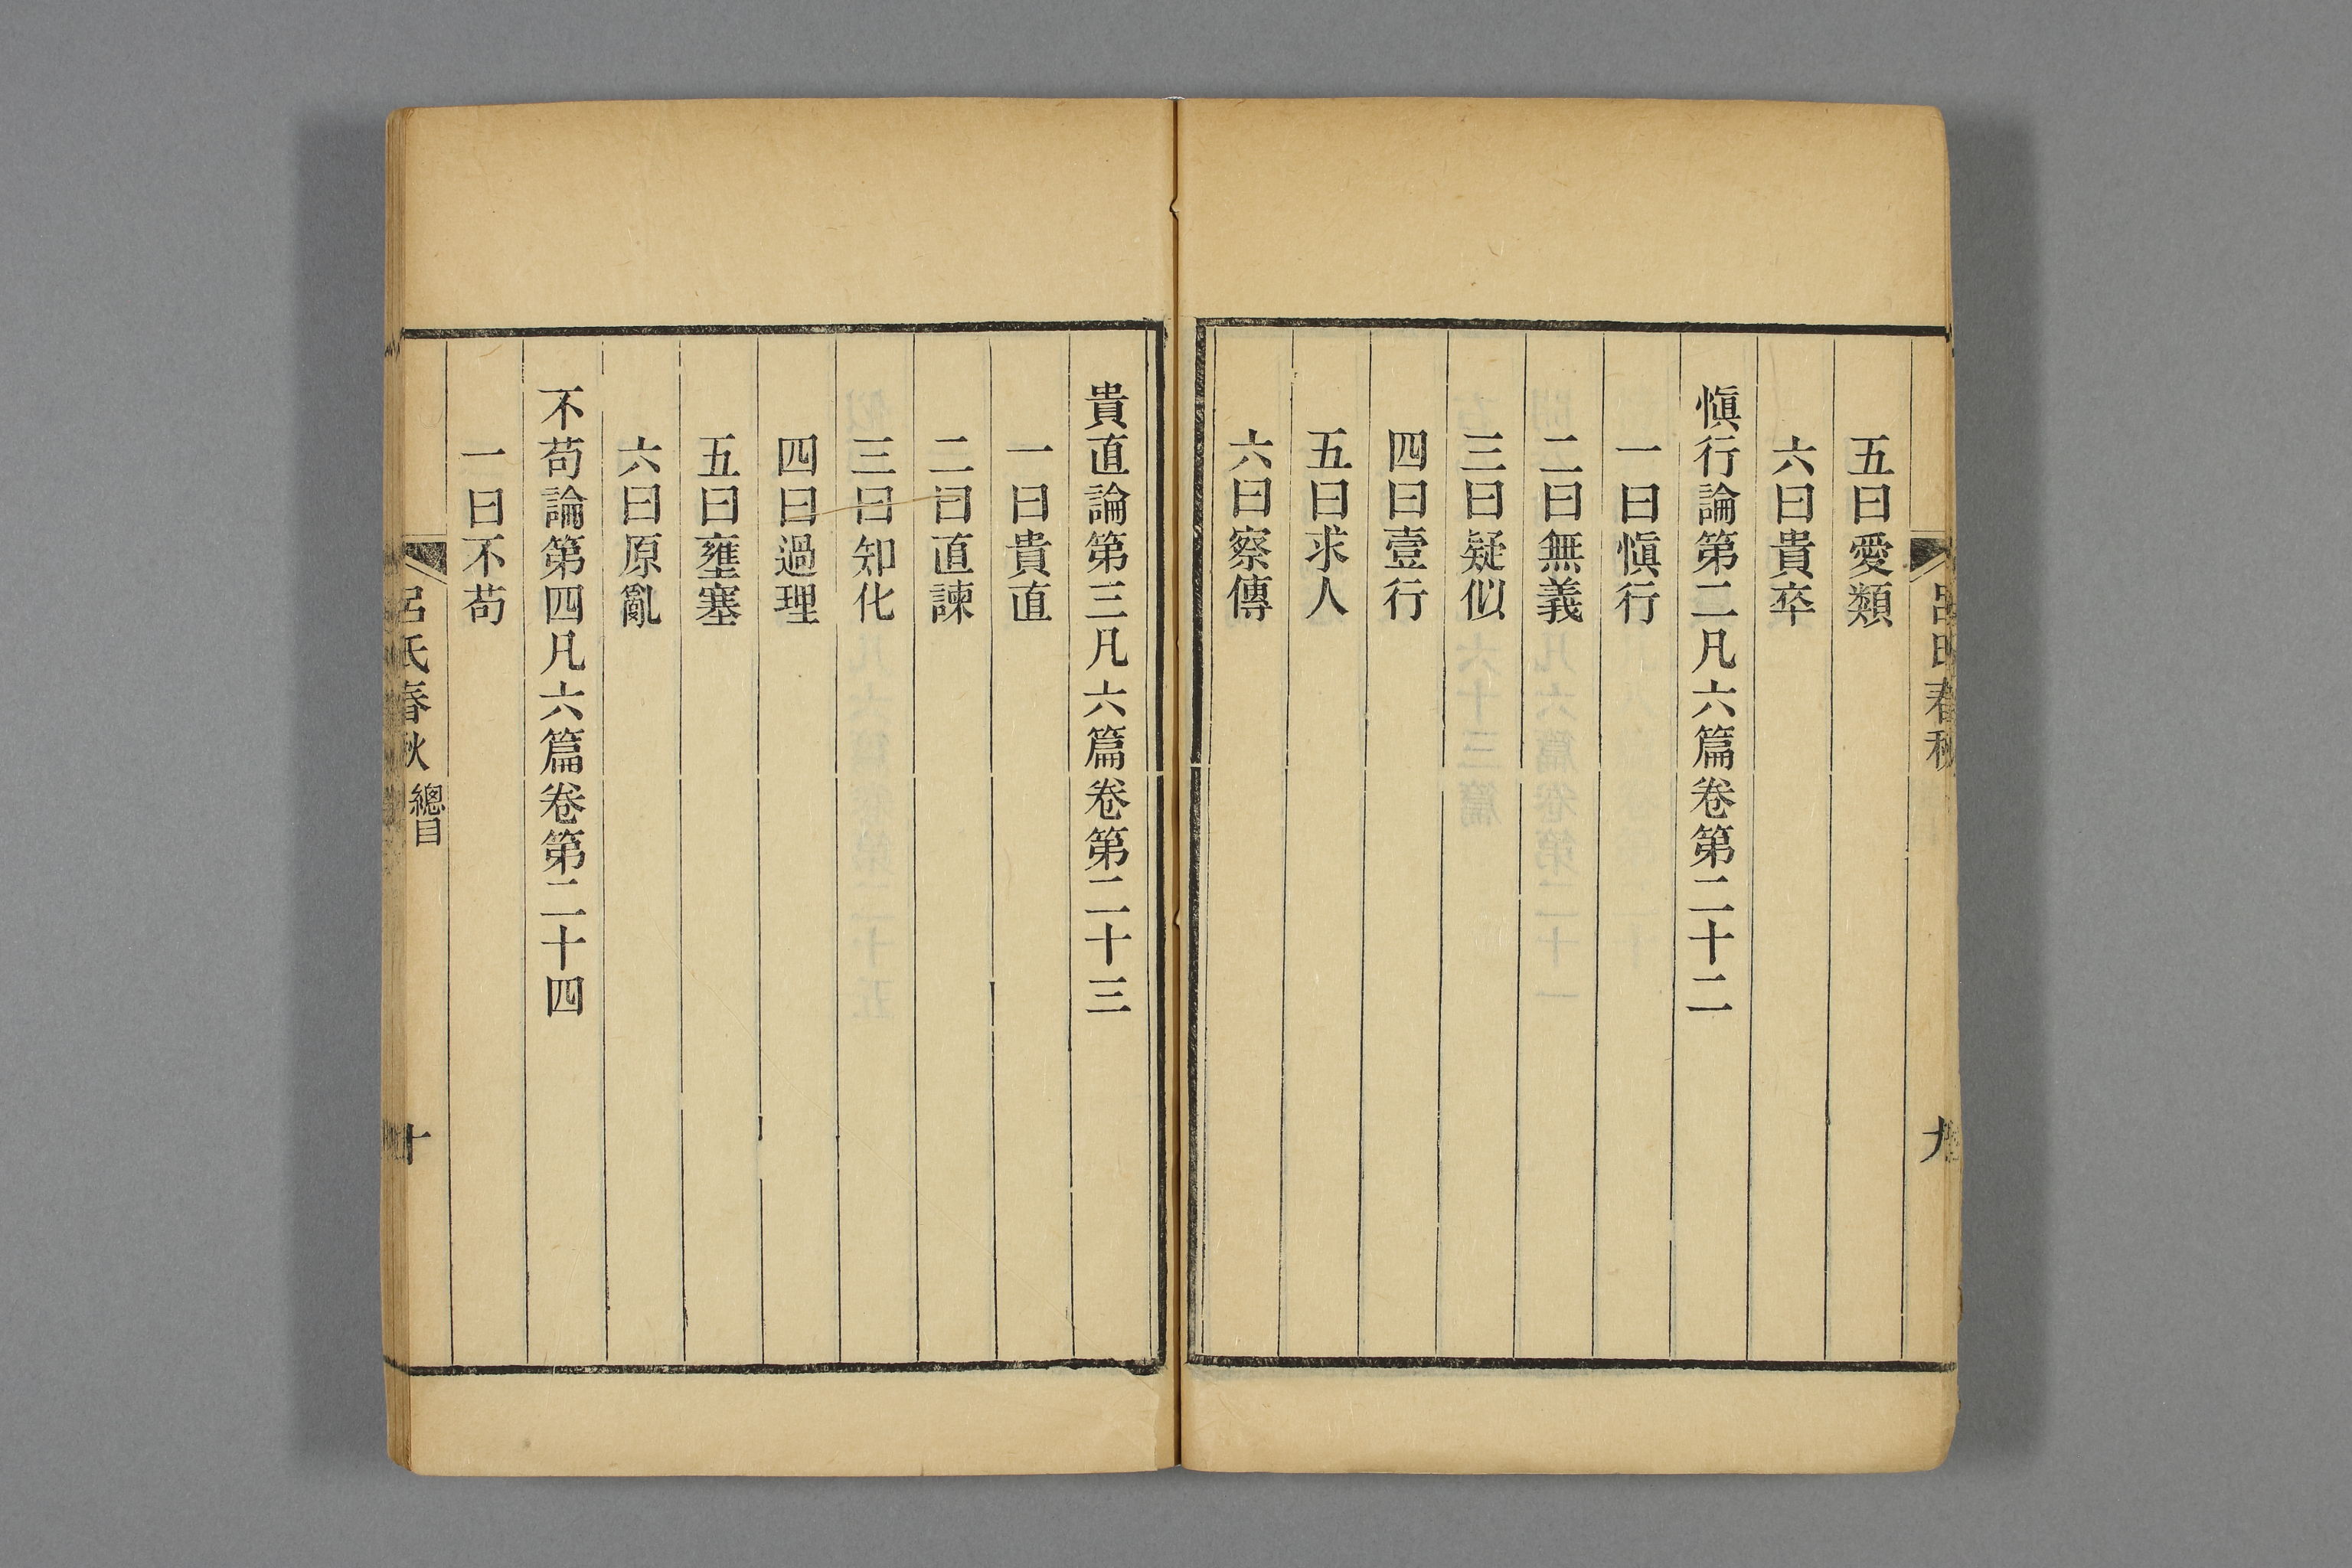 呂氏春秋
九
五曰愛類
六曰貴卒
愼行論第二凡六篇卷第二十二
一曰愼行
二曰無義
三曰疑似
四曰壹行
五曰求人
六曰察傳
貴直論第三凡六篇卷第二十三
一曰貴直
二曰直諫
三曰知化
四曰過理
五曰壅塞
六曰原亂
不苟論第四凡六篇卷第二十四
一曰不苟
呂氏春秋 總目
十